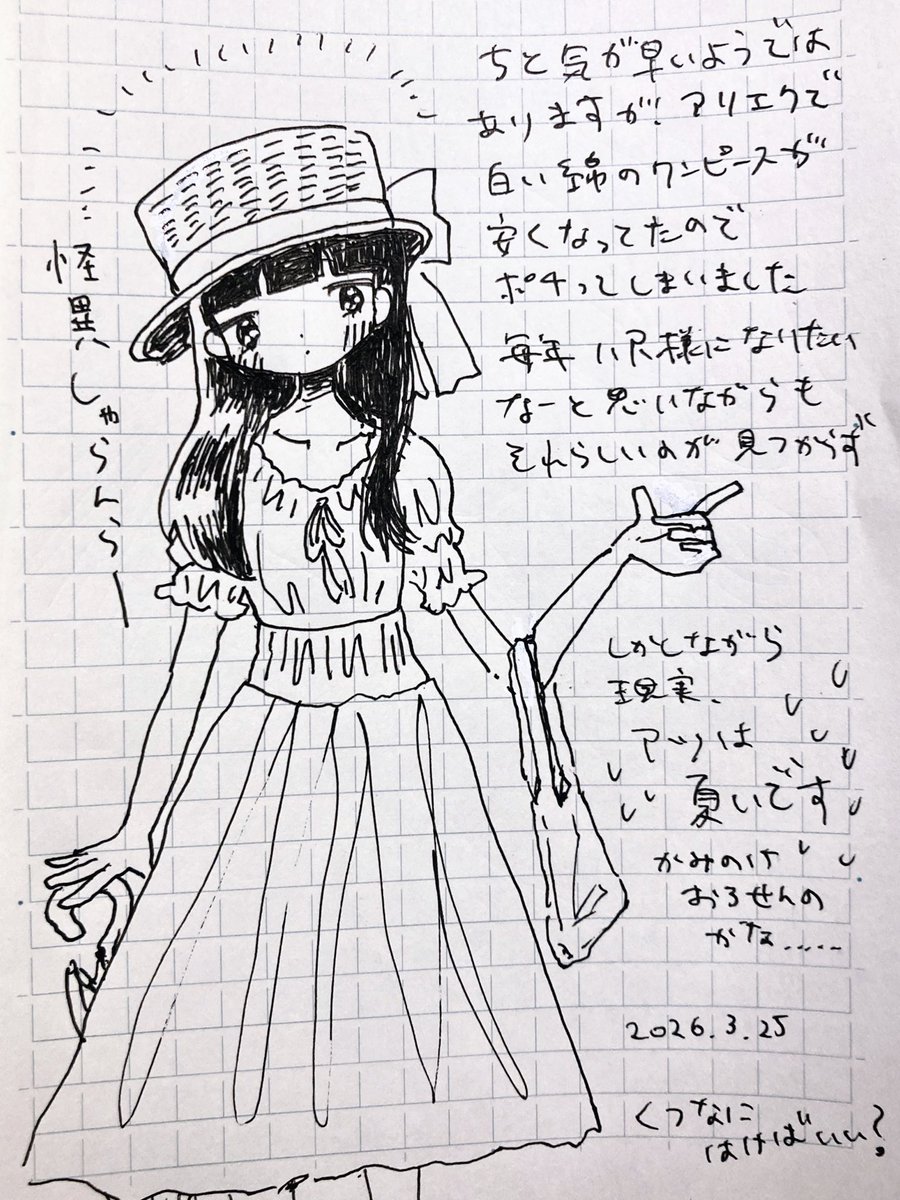 ちと気が早いようでは
ありますが、アリエクで
白い綿のワンピースが
安くなってたので
ポチってしまいました
毎年 八尺様になりたい
なーと思いながらも
それらしいのが見つからず
怪異しゃらんらー
しかしながら
現実、
アツは
夏いです
かみのけ
おろせんの
かな……
2026.3.25
くつなに
はけばいい?